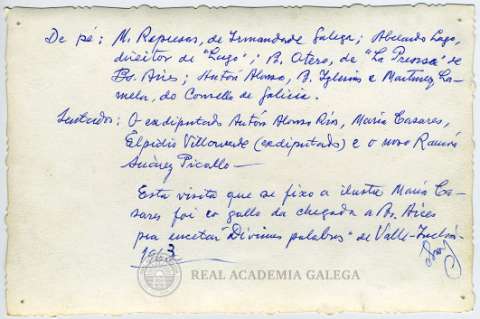 De pé: M. Represas, de Irmandade Galega; Abelardo Lago,
direitor de "Lugo"; B. Otero, de "La Prensa" de
Bos. Aires; Antón Alonso, B. Iglesias e Martínez La-
mela, do Consello de Galicia.
Sentados: O exdiputado Antón Alonso Ríos, María Casares,
Elpidio Villaverde (exdiputado) e o noso Ramón
Suárez Picallo—
Esta visita que se fixo a ilustre María Ca-
sares foi co gallo da chegada a Bs. Aires
pra encetar "Divinas palabras" de Valle-Inclán-
1963
REAL ACADEMIA GALEGA